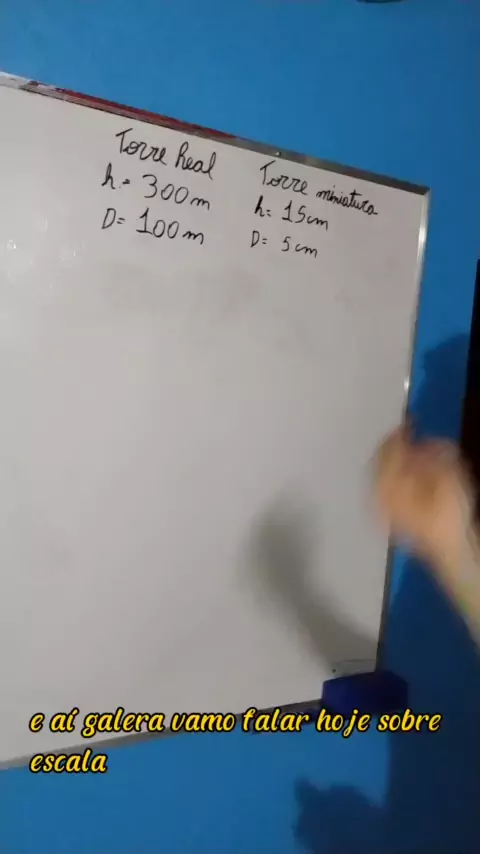 Torre Real
h = 300 m
D = 100 m
Torre miniatura
h = 15 cm
D = 5 cm
e aí galera vamo falar hoje sobre
escala